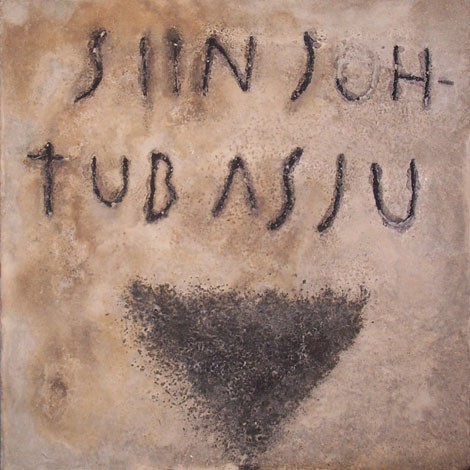 SIIN JUH-
TUB ASJU